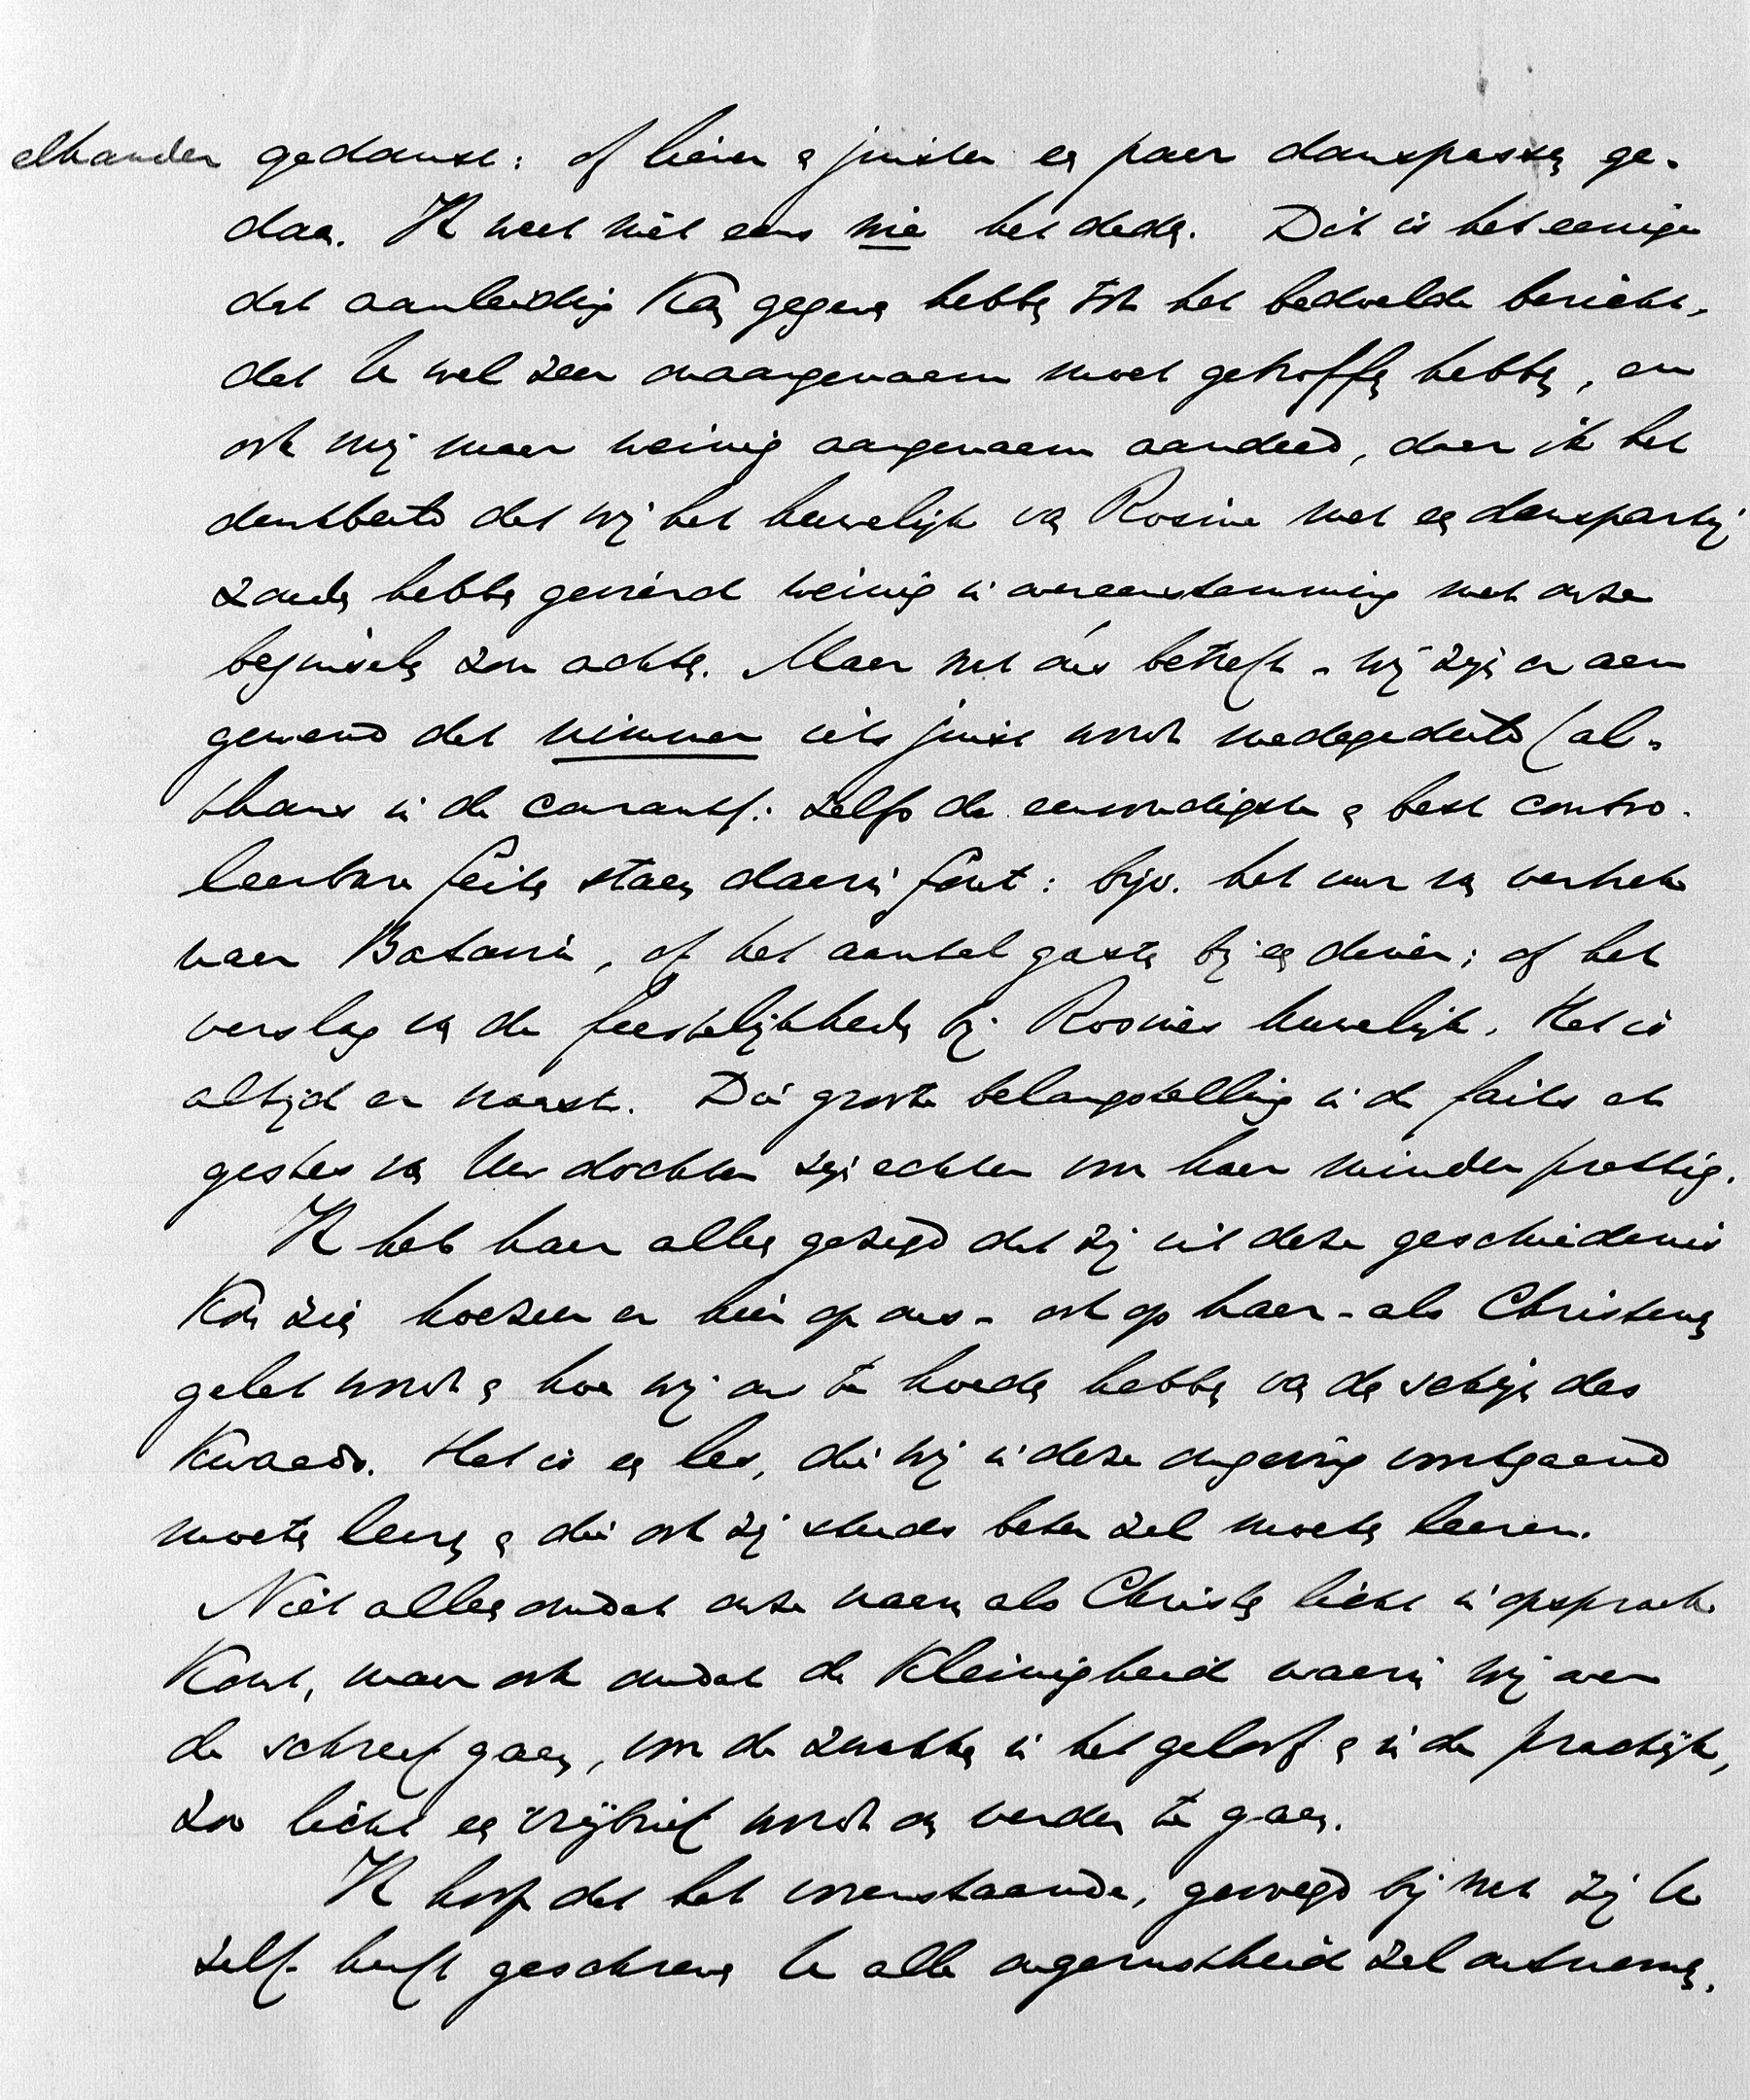 elkander gedanst: of liever en juister een paar danspassen ge-
daan. Ik weet niet eens wie het deden. Dit is het eenige
dat aanleiding kan gegeven hebben tot het bedoelde bericht,
dat U wel zeer onaangenaam moet getroffen hebben, en
ook mij maar weinig aangenaam aandeed, daar ik het
denkbeeld dat wij het huwelijk van Rosine met een danspartij
zouden hebben gevierd weinig in overeenstemming met onze
beginselen zou achten. Maar wat óns betreft - wij zijn er aan
gewend dat nimmer iets juist wordt medegedeeld (al-
thans in de courant): zelfs de eenvoudigste en best contro-
leerbare feiten staan daarin fout: bijv. het uur van vertrek
naar Batavia, of het aantal gasten bij een diner; of het
verslag van de feestelijkheden bij Rosine's huwelijk. Het is
altijd er naast. Die groote belangstelling in de faits et
gestes van Uw dochter zijn echter voor haar minder prettig.
Ik heb haar alleen gezegd dat zij uit deze geschiedenis
kan zien hoezeer er hier op ons - ook op haar - als Christenen
gelet wordt en hoe wij ons te hoeden hebben van den schijn des
kwaads. Het is een les, die wij in deze omgeving voortgaand
moeten leeren en die ook zij steeds beter zal moeten leeren.
Niet alleen omdat onze naam als Christen licht in opspraak
komt, maar ook omdat de kleinigheid waarin wij over
de schreef gaan, voor de zwakken in het geloof en in de practijk,
zoo licht een vrijbrief wordt om verder te gaan.
Ik hoop dat het bovenstaande, gevoegd bij wat zij U
zelf heeft geschreven U alle ongerustheid zal ontnemen.